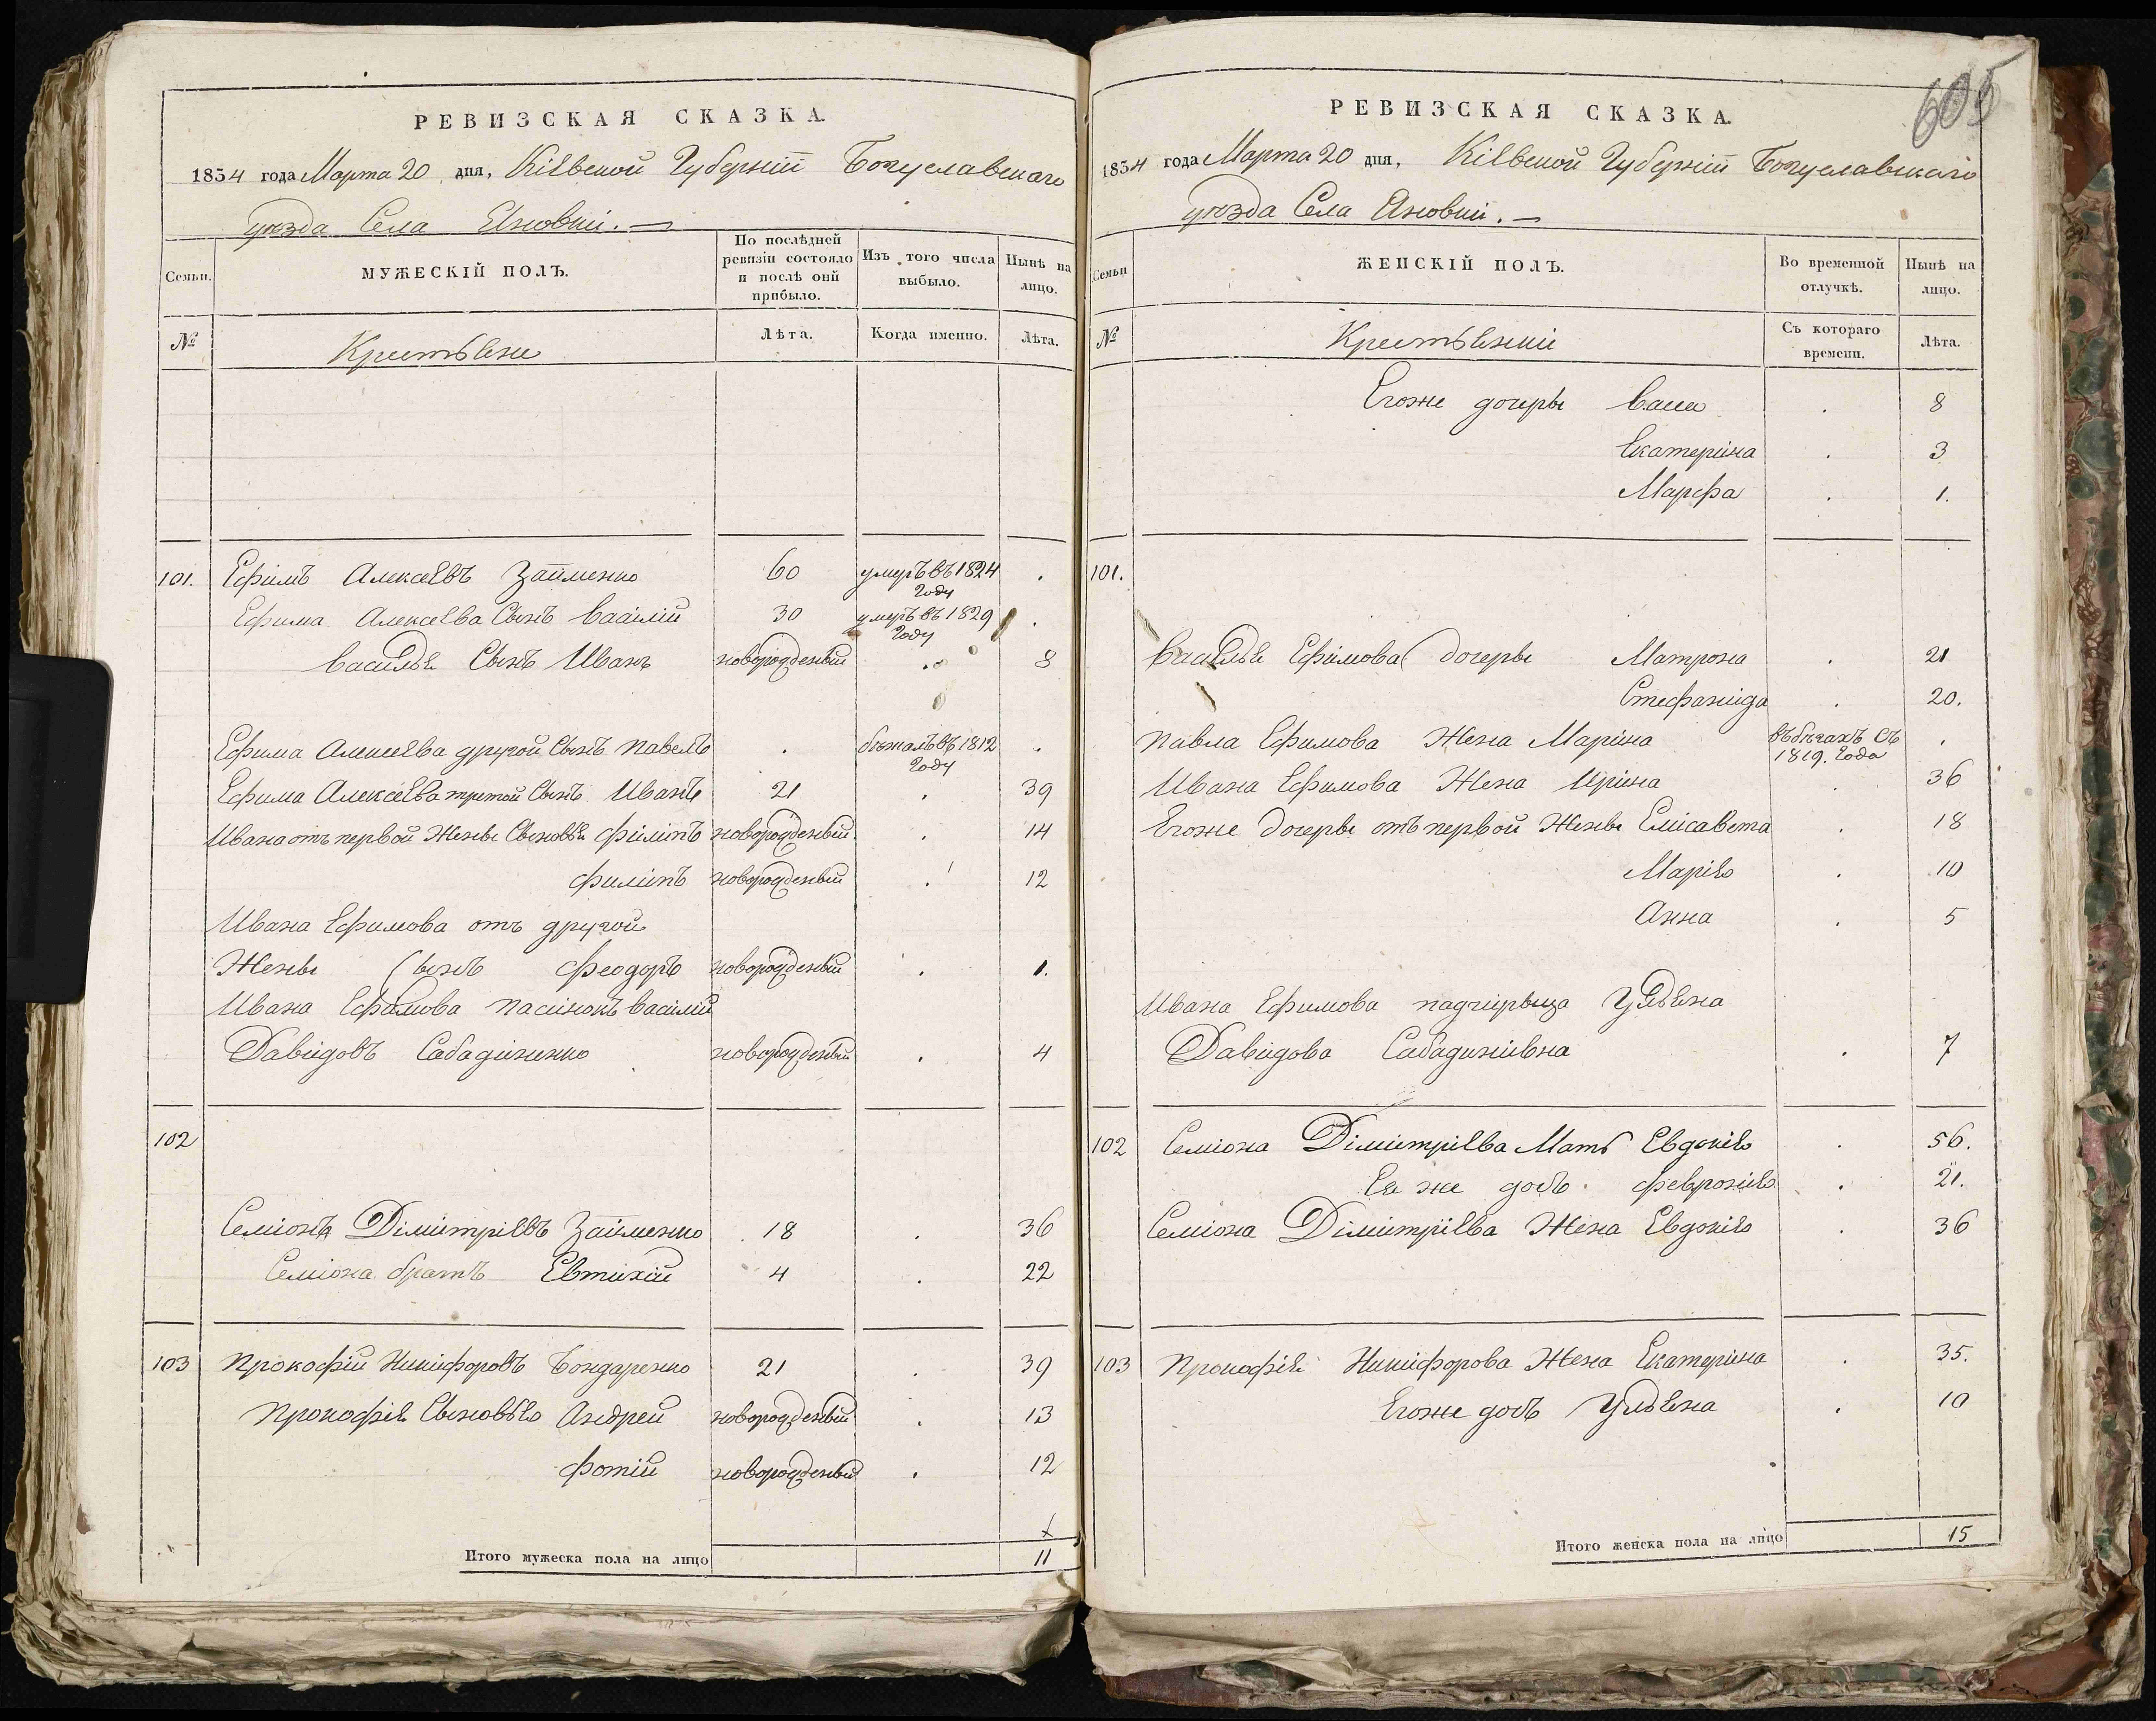 РЕВИЗСКАЯ СКАЗКА.
1834 года Марта 20 дня, Кіевской Губерніи Богуславскаго
уѣзда Села Яновки.
Семьи.
МУЖЕСКІЙ ПОЛЪ.
По послѣдней ревизіи состояло и послѣ оній прибыло.
Изъ того числа выбыло.
Нынѣ на лицо.
№
Крестьяне
Лѣта.
Когда именно.
Лѣта.
101. Ефимъ Алексѣевъ Займенко 60 умеръ въ 1824 году .
Ефима Алексѣева Сынъ Василій 30 умеръ въ 1829 году .
Василья Сынъ Иванъ новорожденый . 8
Ефима Алексѣева другой Сынъ Павелъ . бѣжалъ въ 1812 году .
Ефима Алексѣева третой Сынъ Иванъ 21 . 39
Ивана отъ первой Жены Сыновья Филипъ новорожденый . 14
Филипъ новорожденый . 12
Ивана Ефимова отъ другой
Жены Сынъ Феодоръ новорожденый . 1.
Ивана Ефимова пасинокъ Василій
Давидовъ Сабадиненко новорожденый . 4
102
Семіонъ Діимитріевъ Займенко 18 . 36
Семіона братъ Евтихій 4 . 22
103 Прокофій Никифоровъ Бондаренко 21 . 39
Прокофія Сыновья Андрей новорожденый . 13
Фотій новорожденый . 12
Итого мужеска пола на лицо 11
605
РЕВИЗСКАЯ СКАЗКА.
1834 года Марта 20 дня, Кіевской Губерніи Богуславскаго
уѣзда Села Яновки.
Семьи
ЖЕНСКІЙ ПОЛЪ.
Во временной отлучкѣ.
Нынѣ на лицо.
№
Крестьянки
Съ котораго времени.
Лѣта.
Егоже дочеры Васса . 8
Екатерина . 3
Марфа . 1.
101.
Василья Ефимова дочеры Матрона . 21
Стефанида . 20.
Павла Ефимова Жена Марина въ бѣгахъ съ 1819. года .
Ивана Ефимова Жена Ирина . 36
Егоже дочеры отъ первой Жены Елисавета . 18
Марія . 10
Анна . 5
Ивана Ефимова падчирыца Ульяна
Давидова Сабадинивна . 7
102 Семіона Діимитріева Мать Евдокія . 56.
Ея же дочь Февронія . 21.
Семіона Діимитріева Жена Евдокія . 36
103 Прокофія Никифорова Жена Екатерина . 35.
Егоже дочь Ульяна . 10
Итого женска пола на лицо 15